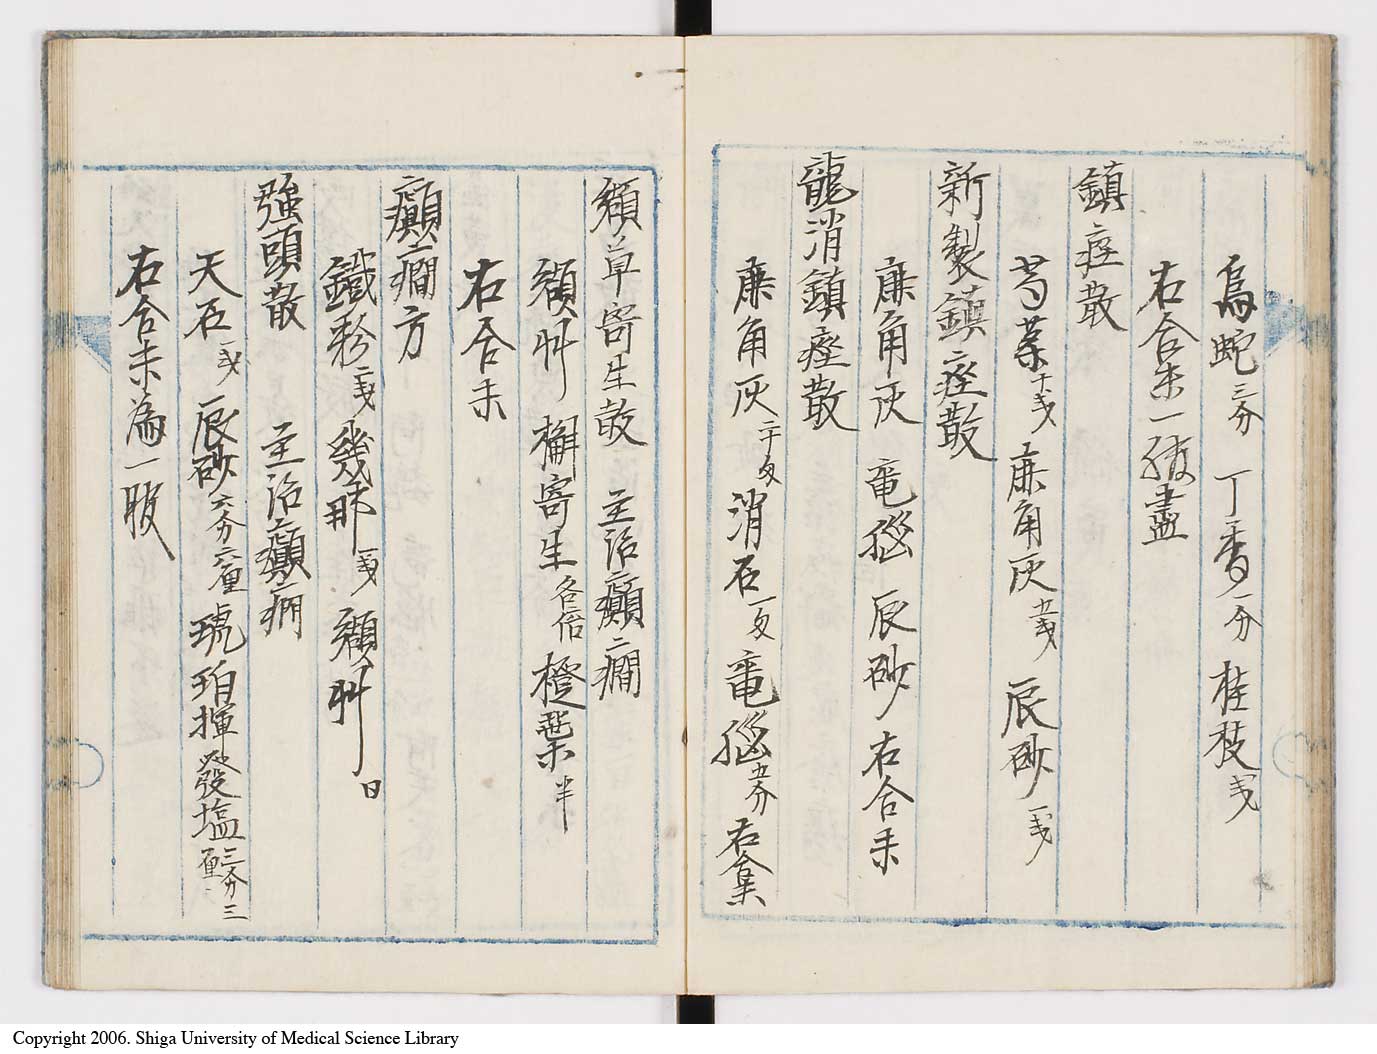 烏蛇三分 丁香一分 桂枝戔
右合末一服盡
鎮痙散
芍薬十戔 麻角灰五戔 辰砂一戔
新製鎮痙散
麻角灰 竜脳 辰砂 右合末
龍消鎮痙散
麻角灰二十匁 消石一匁 竜脳五分 右合末
纈草寄生散 主治癲癇
纈艸 槲寄生各倍 橙葉半
右合末
癲癇方
鐵粉二戔 幾那一戔 纈艸
強頭散 主治癲癇
天石一戔 辰砂六分六厘 琥珀揮発塩三分三厘
右合末為一服
Copyright 2006. Shiga University of Medical Science Library